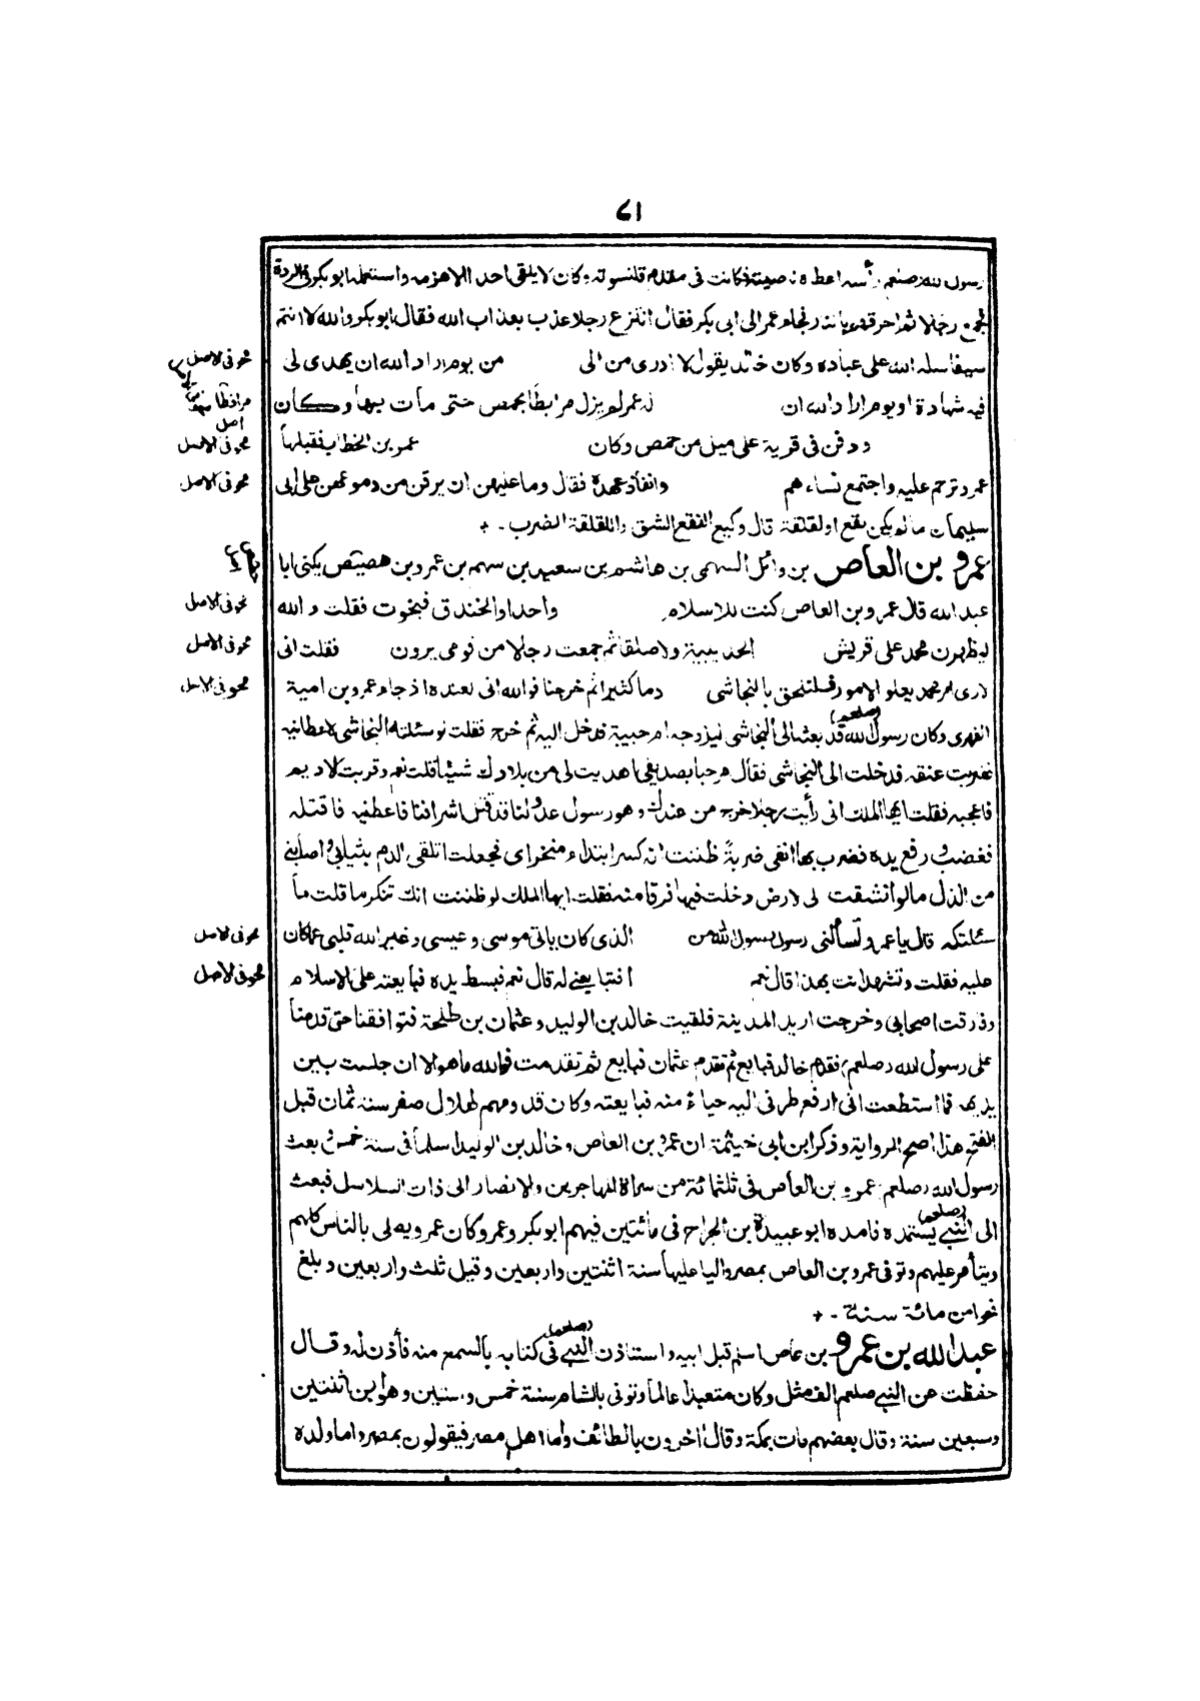 ٨١
رسول الله صلعم رأسه اعطاه ناصيته فكانت فى مقدم قلنسوته وكان لا يلقى احدا الا هزمه واستعمله ابو بكر فى الردة
رجالا ثم احرقهم بالنار فجاء عمر الى ابى بكر فقال انزع رجلا عذب بعذاب الله فقال ابو بكر والله لا
سيفا سله الله على عباده وكان خالد يقول لا ادرى من الى من يوم اراد الله ان يهدى لى
محو فى الاصل
فيه شهادة او يوم اراد الله ان له عمر لم يزل مرابطا بحمص حتى مات بها وكان
ودفن فى قرية على ميل من حمص وكان عمر بن الخطاب فقبلها
محو فى الاصل
عمر وترحم عليه واجتمع نساءهم وانفاذ عهده فقال وما عليهن ان يرقن من دموعهن على ابى
محو فى الاصل
سليمان ما لم يكن نقع او لقلقة قال وكيع النقع الشق واللقلقة الضرب ـ +
عمرو بن العاص بن وائل السهمى بن هاشم بن سعيد بن سهم بن عمرو بن هصيص يكنى ابا
عبد الله قال عمرو بن العاص كنت للاسلام واحدا والخندق فنجوت فقلت والله
محو فى الاصل
ليظهرن محمد على قريش الحديبية ولا صلقا ثم جمعت رجالا من قومى يرون فقلت انى
محو فى الاصل
لارى امر محمد يعلو الامور فلنلحق بالنجاشى دما كثيرا ثم خرجنا فوالله انى لعنده اذ جاء عمرو بن امية
محو فى الاصل
الفهرى وكان رسول الله (صلعم) قد بعثه الى النجاشى ليزوجه ام حبيبة فدخل اليه ثم خرج فقلت لو سئلته النجاشى لاعطانيه
فضربت عنقه فدخلت الى النجاشى فقال مرحبا بصديقى اهديت لى من بلادك شيئا قلت نعم وقربت له اديم
فاعجبه فقلت ايها الملك انى رأيت رجلا خرج من عندك وهو رسول عدو لنا قد قتل اشرافنا فاعطنيه فاقتله
فغضب و رفع يده فضرب بها انفى ضربة ظننت انه كسر ابتداء منخراى فجعلت اتلقى الدم بثيابى واصابنى
من الذل ما لو انشقت لى الارض دخلت فيها فرقا منه فقلت ايها الملك لو ظننت انك تنكر ما قلت ما
سئلتكه قال يا عمرو تسألنى رسول رسول الله من الذى كان ياتى موسى وعيسى وغير الله قلبى عما كان
محو فى الاصل
عليه فقلت وتشهد انت بهذا قال نعم افتبايعنى له قال نعم فبسط يده فبايعته على الاسلام
محو فى الاصل
وفارقت اصحابى وخرجت اريد المدينة فلقيت خالد بن الوليد وعثمان بن طلحة فتوافقنا حتى قدمنا
على رسول الله (صلعم) فقدم خالد فبايع ثم تقدم عثمان فبايع ثم تقدمت فوالله ما هو الا ان جلست بين
يديه فما استطعت انى ارفع طرفى اليه حياء منه فبايعته وكان قدومهم لهلال صفر سنة ثمان قبل
الفتح هذا اصح الرواية وذكر ابن ابى خيثمة ان عمرو بن العاص وخالد بن الوليد اسلما فى سنة خمس و بعث
رسول الله (صلعم) عمرو بن العاص فى ثلثمائة من سراة المهاجرين والانصار الى ذات السلاسل فبعث
الى النبى (صلعم) يستمده فامده ابو عبيدة بن الجراح فى مائتين فيهم ابو بكر وعمر وكان عمرو يصلى بالناس كلهم
ويتأمر عليهم وتوفى عمرو بن العاص بمصر واليا عليها سنة اثنتين واربعين وقيل ثلث واربعين وبلغ
نحوا من مائة سنة ـ +
عبد الله بن عمرو بن عاص اسلم قبل ابيه واستاذن النبى (صلعم) فى كتابه بالسمع منه فأذن له وقال
حفظت عن النبى صلعم الف مثل وكان متعبدا عالما وتوفى بالشام سنة خمس وستين وهو ابن اثنتين
وسبعين سنة وقال بعضهم مات بمكة وقال اخرون بالطائف واما اهل مصر فيقولون بمصر واما ولده